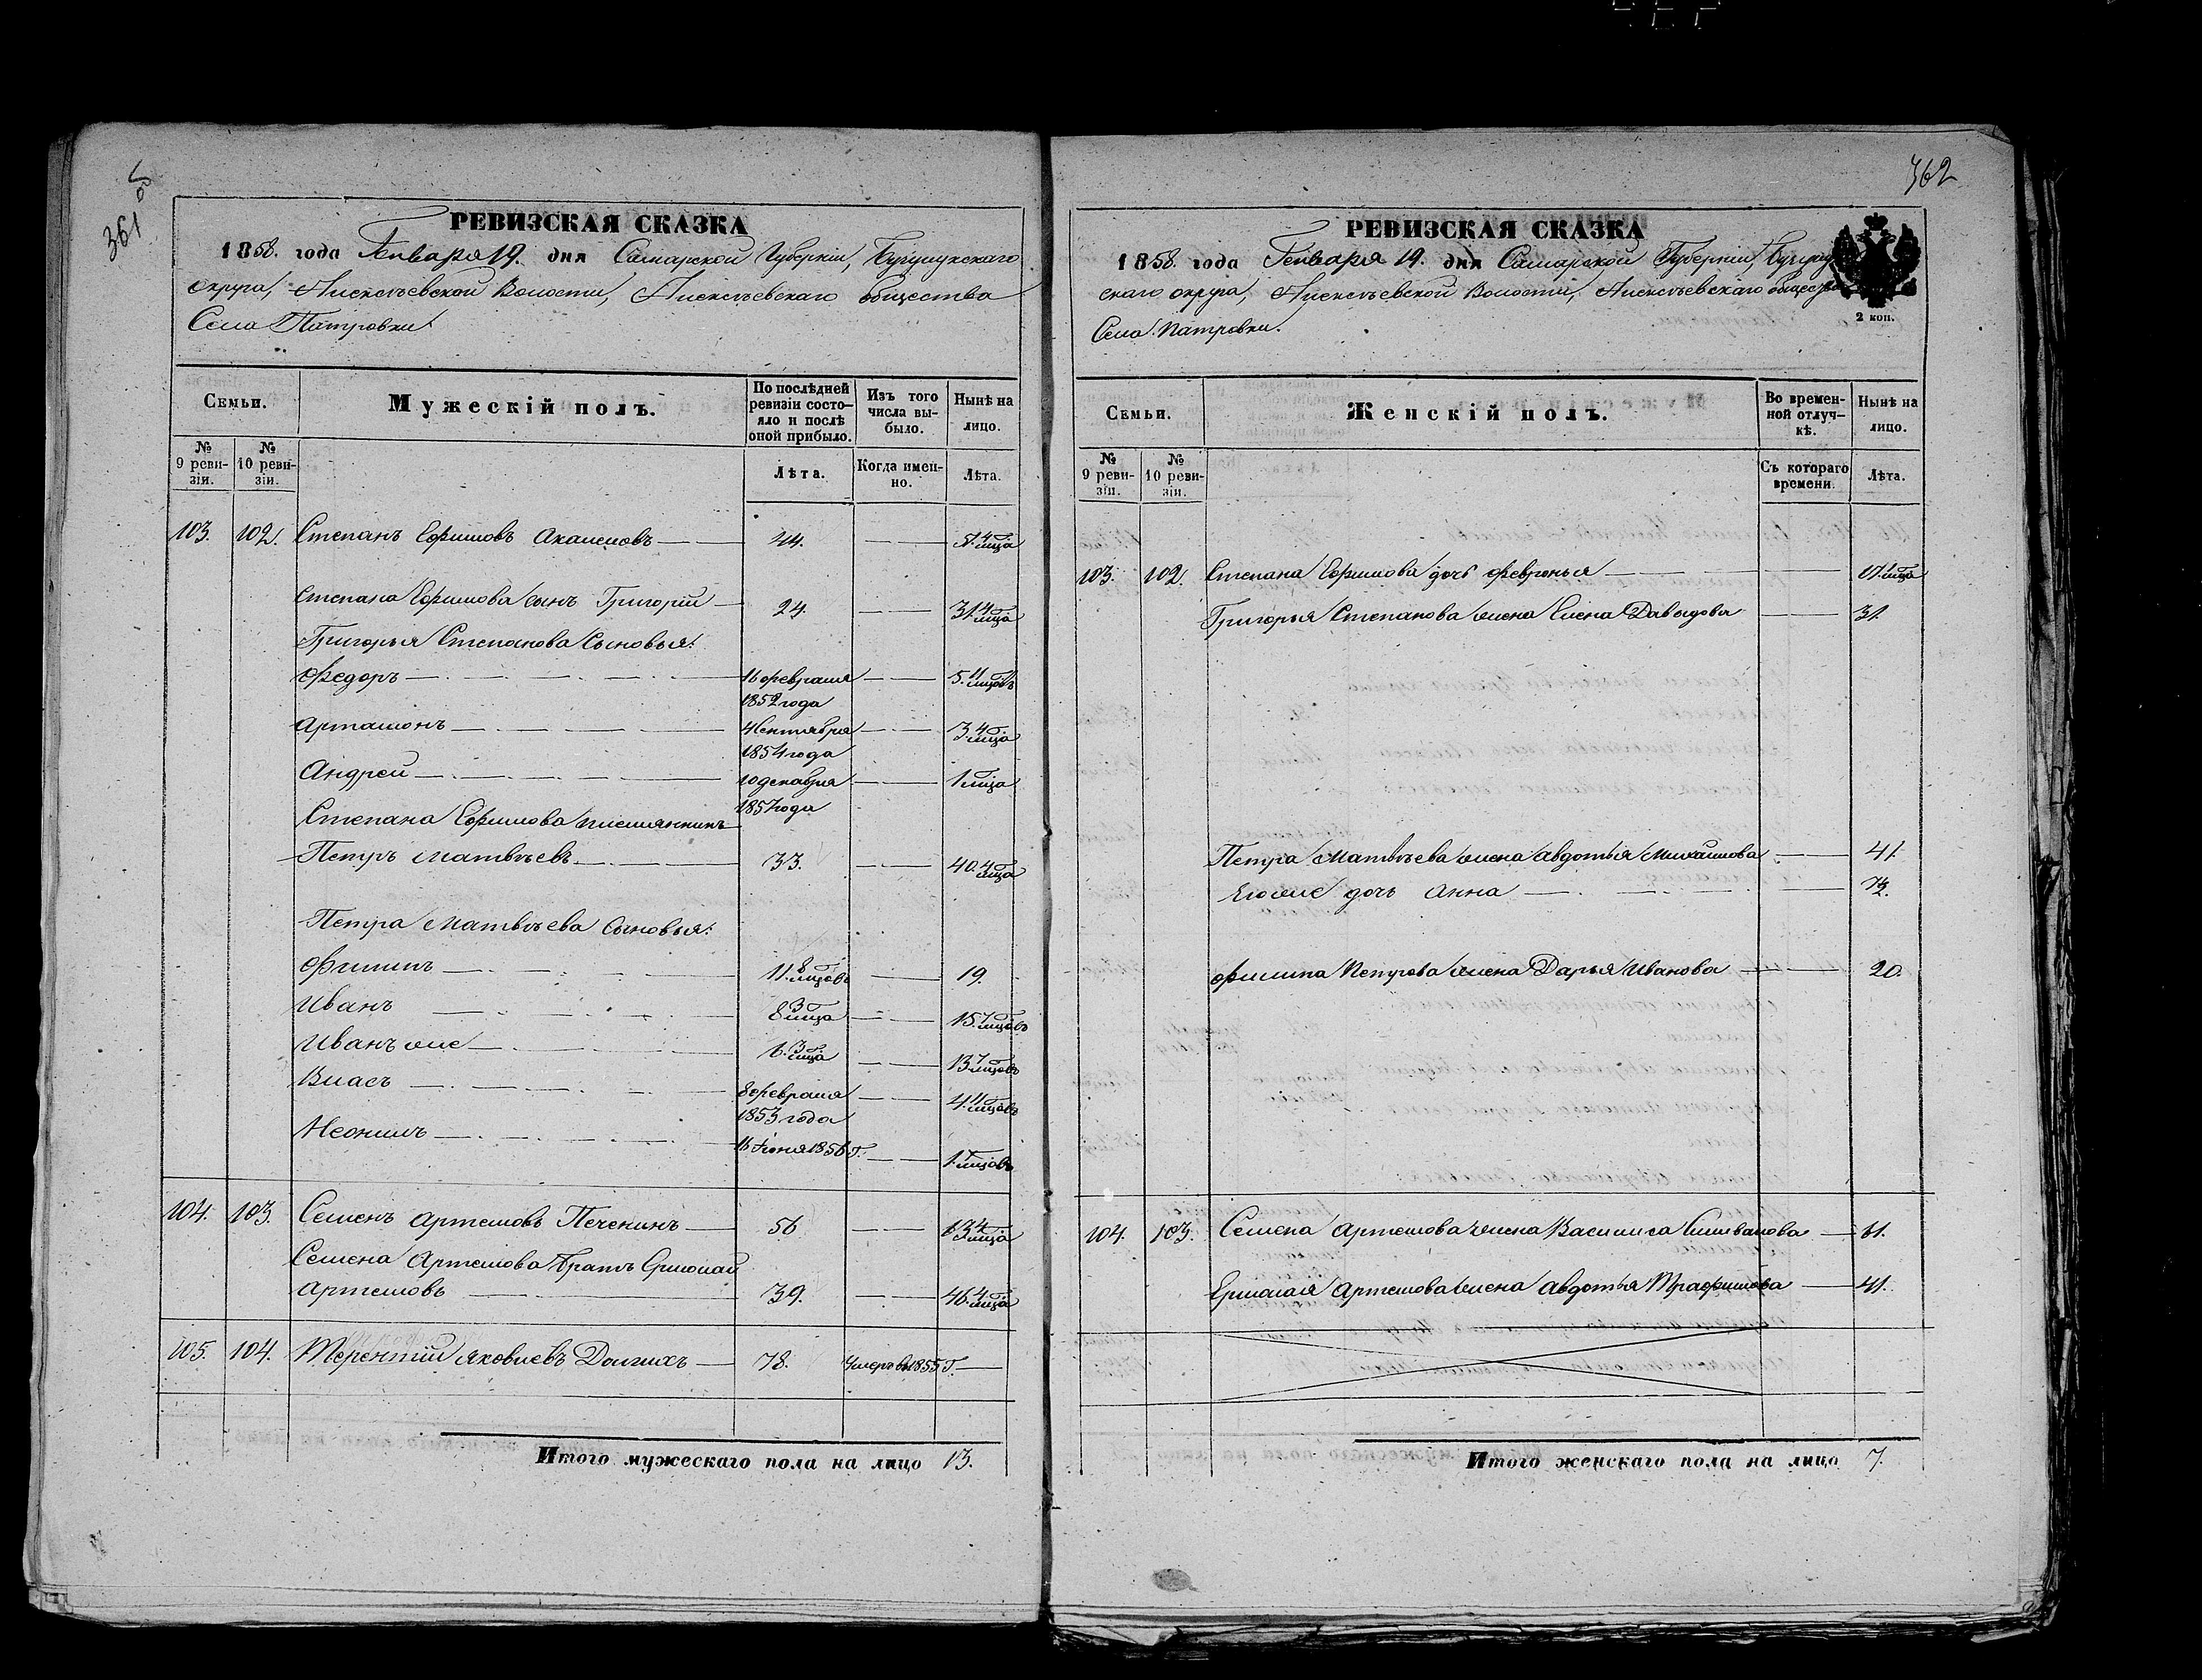 361 об
РЕВИЗСКАЯ СКАЗКА
1858. года Генваря 19. дня Самарской Губерніи, Бугурускаго
округа, Алексѣевской Волости, Алексѣевскаго общества
Села Патровки.
Семьи.
Мужескій полъ.
По послѣдней ревизіи состо-
яло и послѣ
оной прибыло.
Изъ того
числа вы-
было.
Нынѣ на
лицо.
№
9 реви-
зіи.
№
10 реви-
зіи.
Лѣта.
Когда имен-
но.
Лѣта.
103. 102. Степанъ Ефимовъ Акамсовъ 44. 51. 4 мѣсяца
Степана Ефимова сынъ Григорій 24. 31. 4 мѣсяца
Григорья Степанова Сыновья:
Федоръ 16 февраля 5. 11 мѣсяцовъ
1852 года
Артамонъ 4 Сентября 3. 4 мѣсяца
1854 года
Андрей 10 декабря 1 мѣсяца
1857 года
Степана Ефимова племянникъ
Петръ Матвѣевъ 33. 40. 4 мѣсяца
Петра Матвѣева Сыновья:
Филипъ 11. 8 мѣсяцовъ 19.
Иванъ 8 3 мѣсяца 15. 7 мѣсяцовъ
Иванъ же 6. 3 мѣсяца 13 7 мѣсяцовъ
Власъ 8 февраля 4. 11 мѣсяцовъ
1853 года
Неонилъ 16 Іюня 1856 г. 1. 7 мѣсяцовъ
104. 103. Семенъ Артемовъ Печенинъ 56 63 4 мѣсяца
Семена Артемова братъ Ермолай
Артемовъ 39. 46. 4 мѣсяца
105. 104. Терентій Яковлевъ Долгихъ 78. Умеръ въ 1855 г.
Итого мужескаго пола на лицо 13.
362
РЕВИЗСКАЯ СКАЗКА
1858. года Генваря 19. дня Самарской Губерніи,
скаго округа, Алексѣевской Волости, Алексѣевскаго общества
Села Патровки.
2 коп.
Семьи.
Женскій полъ.
Во времен-
ной отлуч-
кѣ.
Нынѣ на
лицо.
№
9 реви-
зіи.
№
10 реви-
зіи.
Съ котораго
времени.
Лѣта.
103. 102. Степана Ефимова дочь Февронья
Григорья Степанова жена Елена Давыдова 31.
Петра Матвѣева жена Авдотья Михайлова 41.
Егоже дочь Анна
Филипа Петрова жена Дарья Иванова 20.
104. 103. Семена Артемова жена Василиса Силиванова 61.
Ермолая Артемова жена Авдотья Трафимова 41.
Итого женскаго пола на лицо 7.